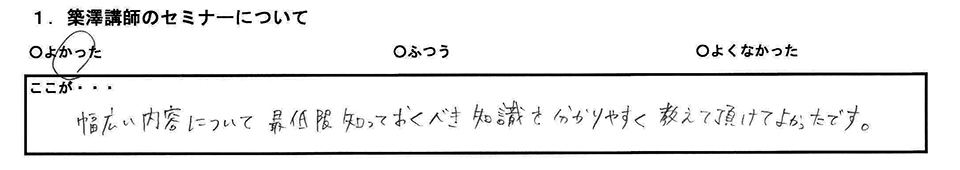 １．築澤講師のセミナーについて
○よかった ○ふつう ○よくなかった
ここが・・・
幅広い内容について 最低限知っておくべき知識を分かりやすく教えて頂けてよかったです。